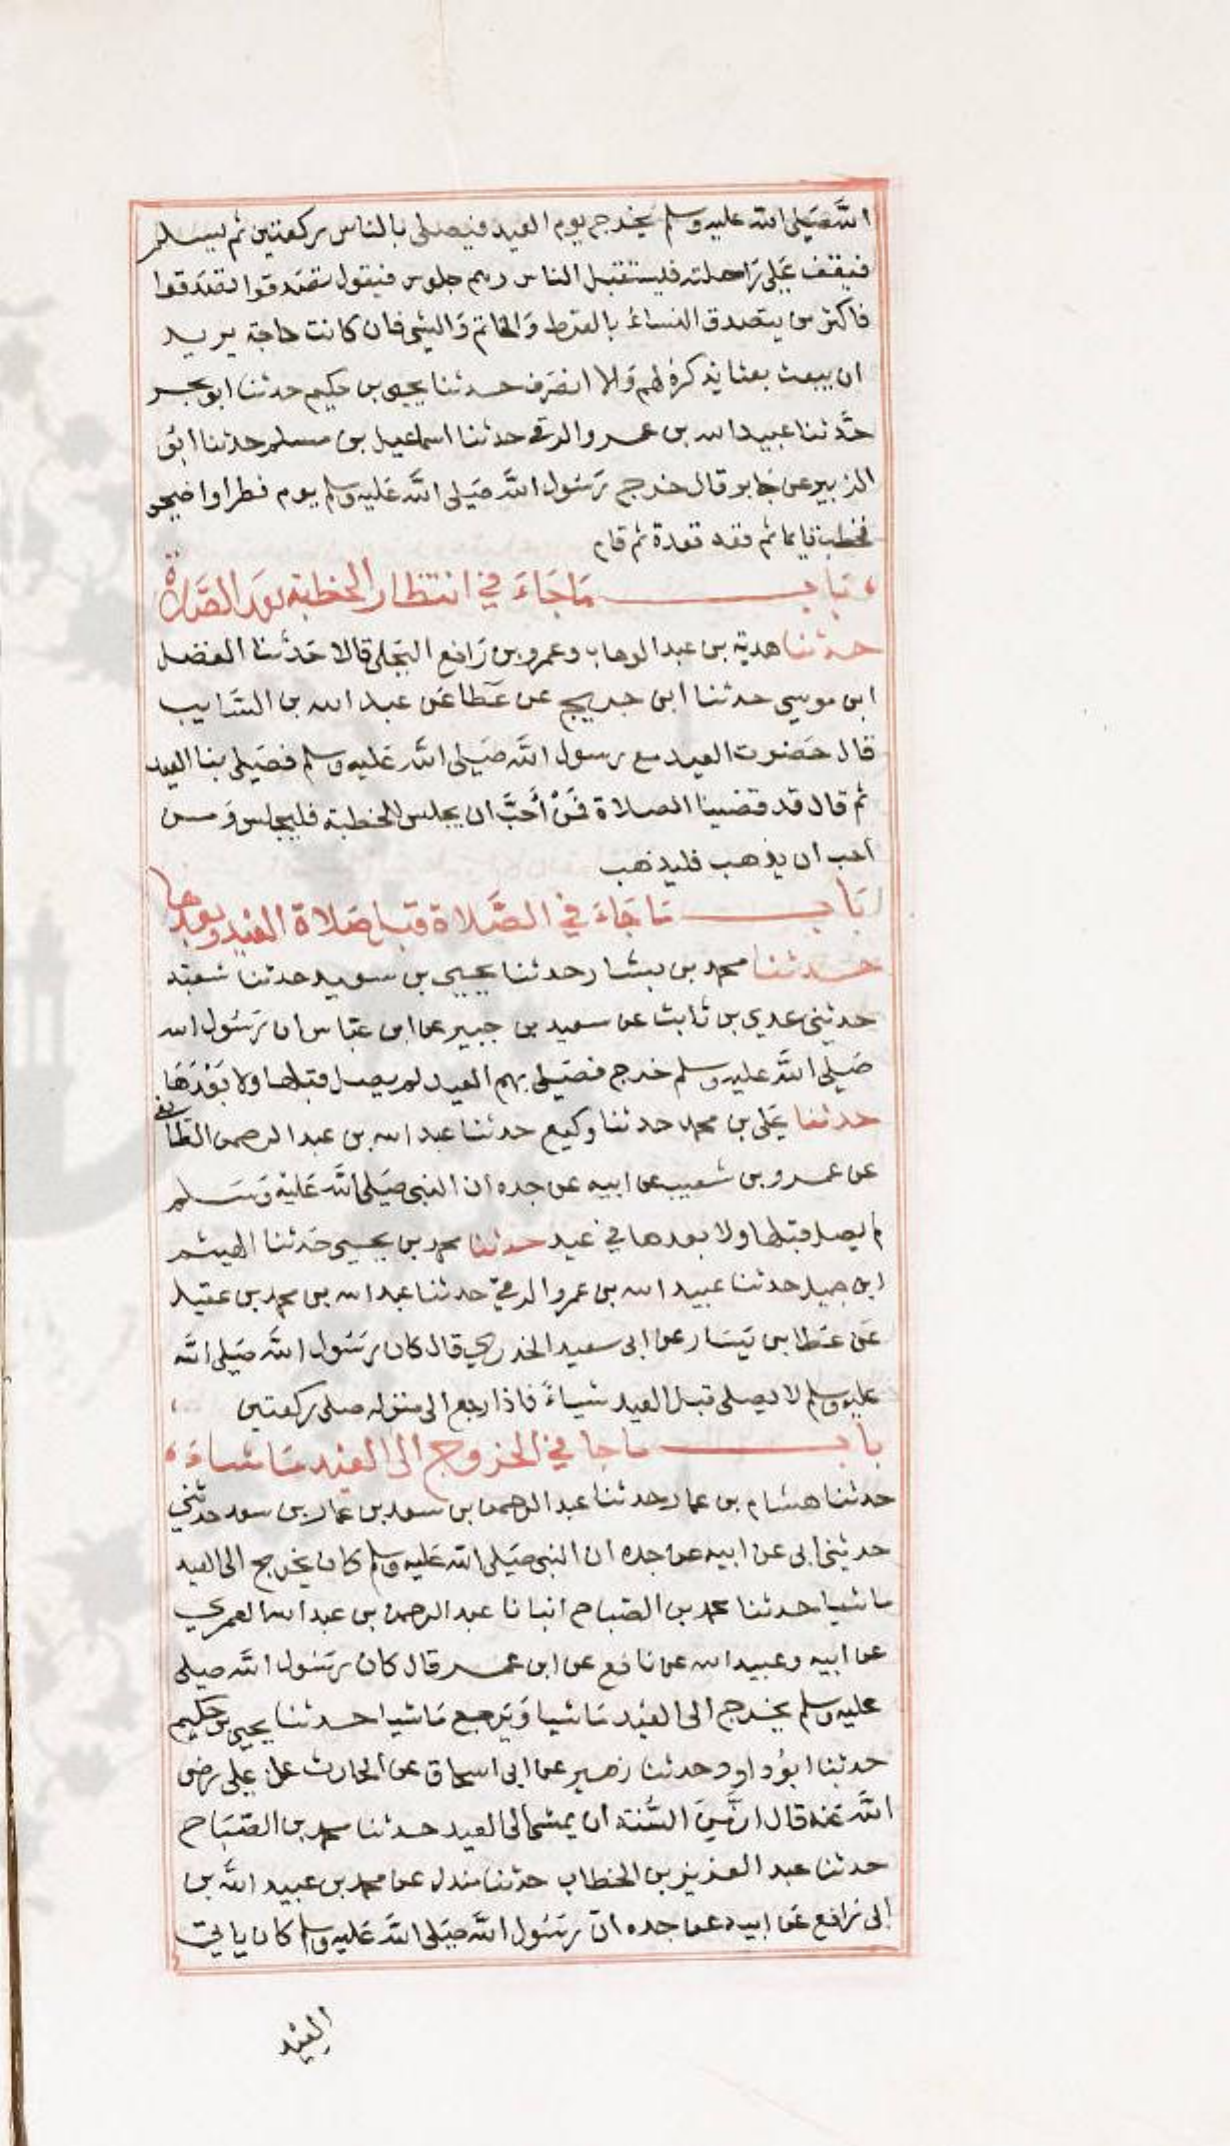 الله صَلى الله عليه وسلم يخرج يوم العيد فيصلى بالناس ركعتين ثم يسلم
فيقف عَلى رَاحلته فيستقبل الناس وهم جلوس فيقول تصَدقوا تصَدقوا
فاكثر من يتصدق النساءُ بالقرط وَالخاتم وَالشي فان كانت حاجة يريد
ان يبعث بعثا يذكرهُ لهم وَلا انصَرف حدثنا يحيى بن حكيم حدثنا ابو بحر
حدَّثنا عبيد الله بن عمرو الرقي حدثنا اسماعيل بن مسلم حدثنا ابو
الزبير عن جَابر قال خرج رَسُول الله صَلى الله عَليه وسلم يوم فطر او اضحى
فخطب قايما ثم قعد قعدة ثم قام
بَاب مَا جَاءَ في انتظار الخطبة بعَد الصَّلاة
حدثنا هدية بن عبد الوهاب وعمرو بن رَافع البَجلي قالا حَدثنا الفضل
ابن موسي حدثنا ابن جريج عن عَطا عَن عبد الله بن السَّايب
قال حَضرت العيد مع رسول الله صَلى الله عَليه وسلم فصَلى بنا العيد
ثم قال قد قضينا الصلاة فَمَنْ أَحَبَّ ان يجلس للخطبة فليجلس وَمن
احب ان يذهب فليذهب
بَاب مَا جَاءَ في الصَّلاة قبل صَلاة العيد وبعدها
حدثنا محمد بن بشار حدثنا يحيى بن سعيد حدثنا شعبة
حدثني عدي بن ثابت عن سعيد بن جبير عن ابن عبَاس ان رَسُول الله
صَلى الله عليه وسلم خرج فصَلى بهم العيد لم يصل قبلها ولا بَعْدَهَا
حدثنا عَلي بن محمد حدثنا وكيع حدثنا عبد الله بن عبد الرحمن الطائفي
عن عمرو بن شعيب عن ابيه عن جده ان النبي صَلى الله عَليه وَسَلم
لم يصل قبلها ولا بعدها في عيد حدثنا محمد بن يحيى حَدثنا الهيثم
ابن جميل حدثنا عبيد الله بن عمرو الرقي حدثنا عبد الله بن محمد بن عقيل
عَن عَطا بن يَسَار عن ابى سعيد الخدري قال كان رَسُول الله صَلى الله
عليه وسلم لا يصلى قبل العيد شياءً فاذا رجع الى منزله صلى ركعتين
باب ما جا في الخروج الى العيد مَاشياءَ
حدثنا هشام بن عمار حدثنا عبد الرحمن بن سعد بن عمار بن سعد حدثني
حدثني ابى عن ابيه عن جده ان النبي صَلى الله عَليه وسلم كان يخرج الى العيد
ماشيا حدثنا محمد بن الصَباح انبانا عبد الرحمن بن عبد الله العمري
عن ابيه وعبيد الله عن نافع عن ابن عمر قال كان رَسُول الله صلى
عليه وسلم يخرج الى العيد مَاشيا وَيَرجع مَاشيا حدثنا يحيى بن حكيم
حدثنا ابوُ داود حدثنا زهير عن ابى اسحاق عن الحارث عن علي رضى
الله عَنه قال ان مِنَ السُّنة ان يمشى الى العيد حدثنا محمد بن الصَّبَاح
حدثنا عبد العزيز بن الخطاب حدثنا مندل عن محمد بن عبيد الله بن
ابى رَافع عَن ابيه عن جده ان رَسُول الله صَلى الله عَليه وسلم كان ياتي
العيد